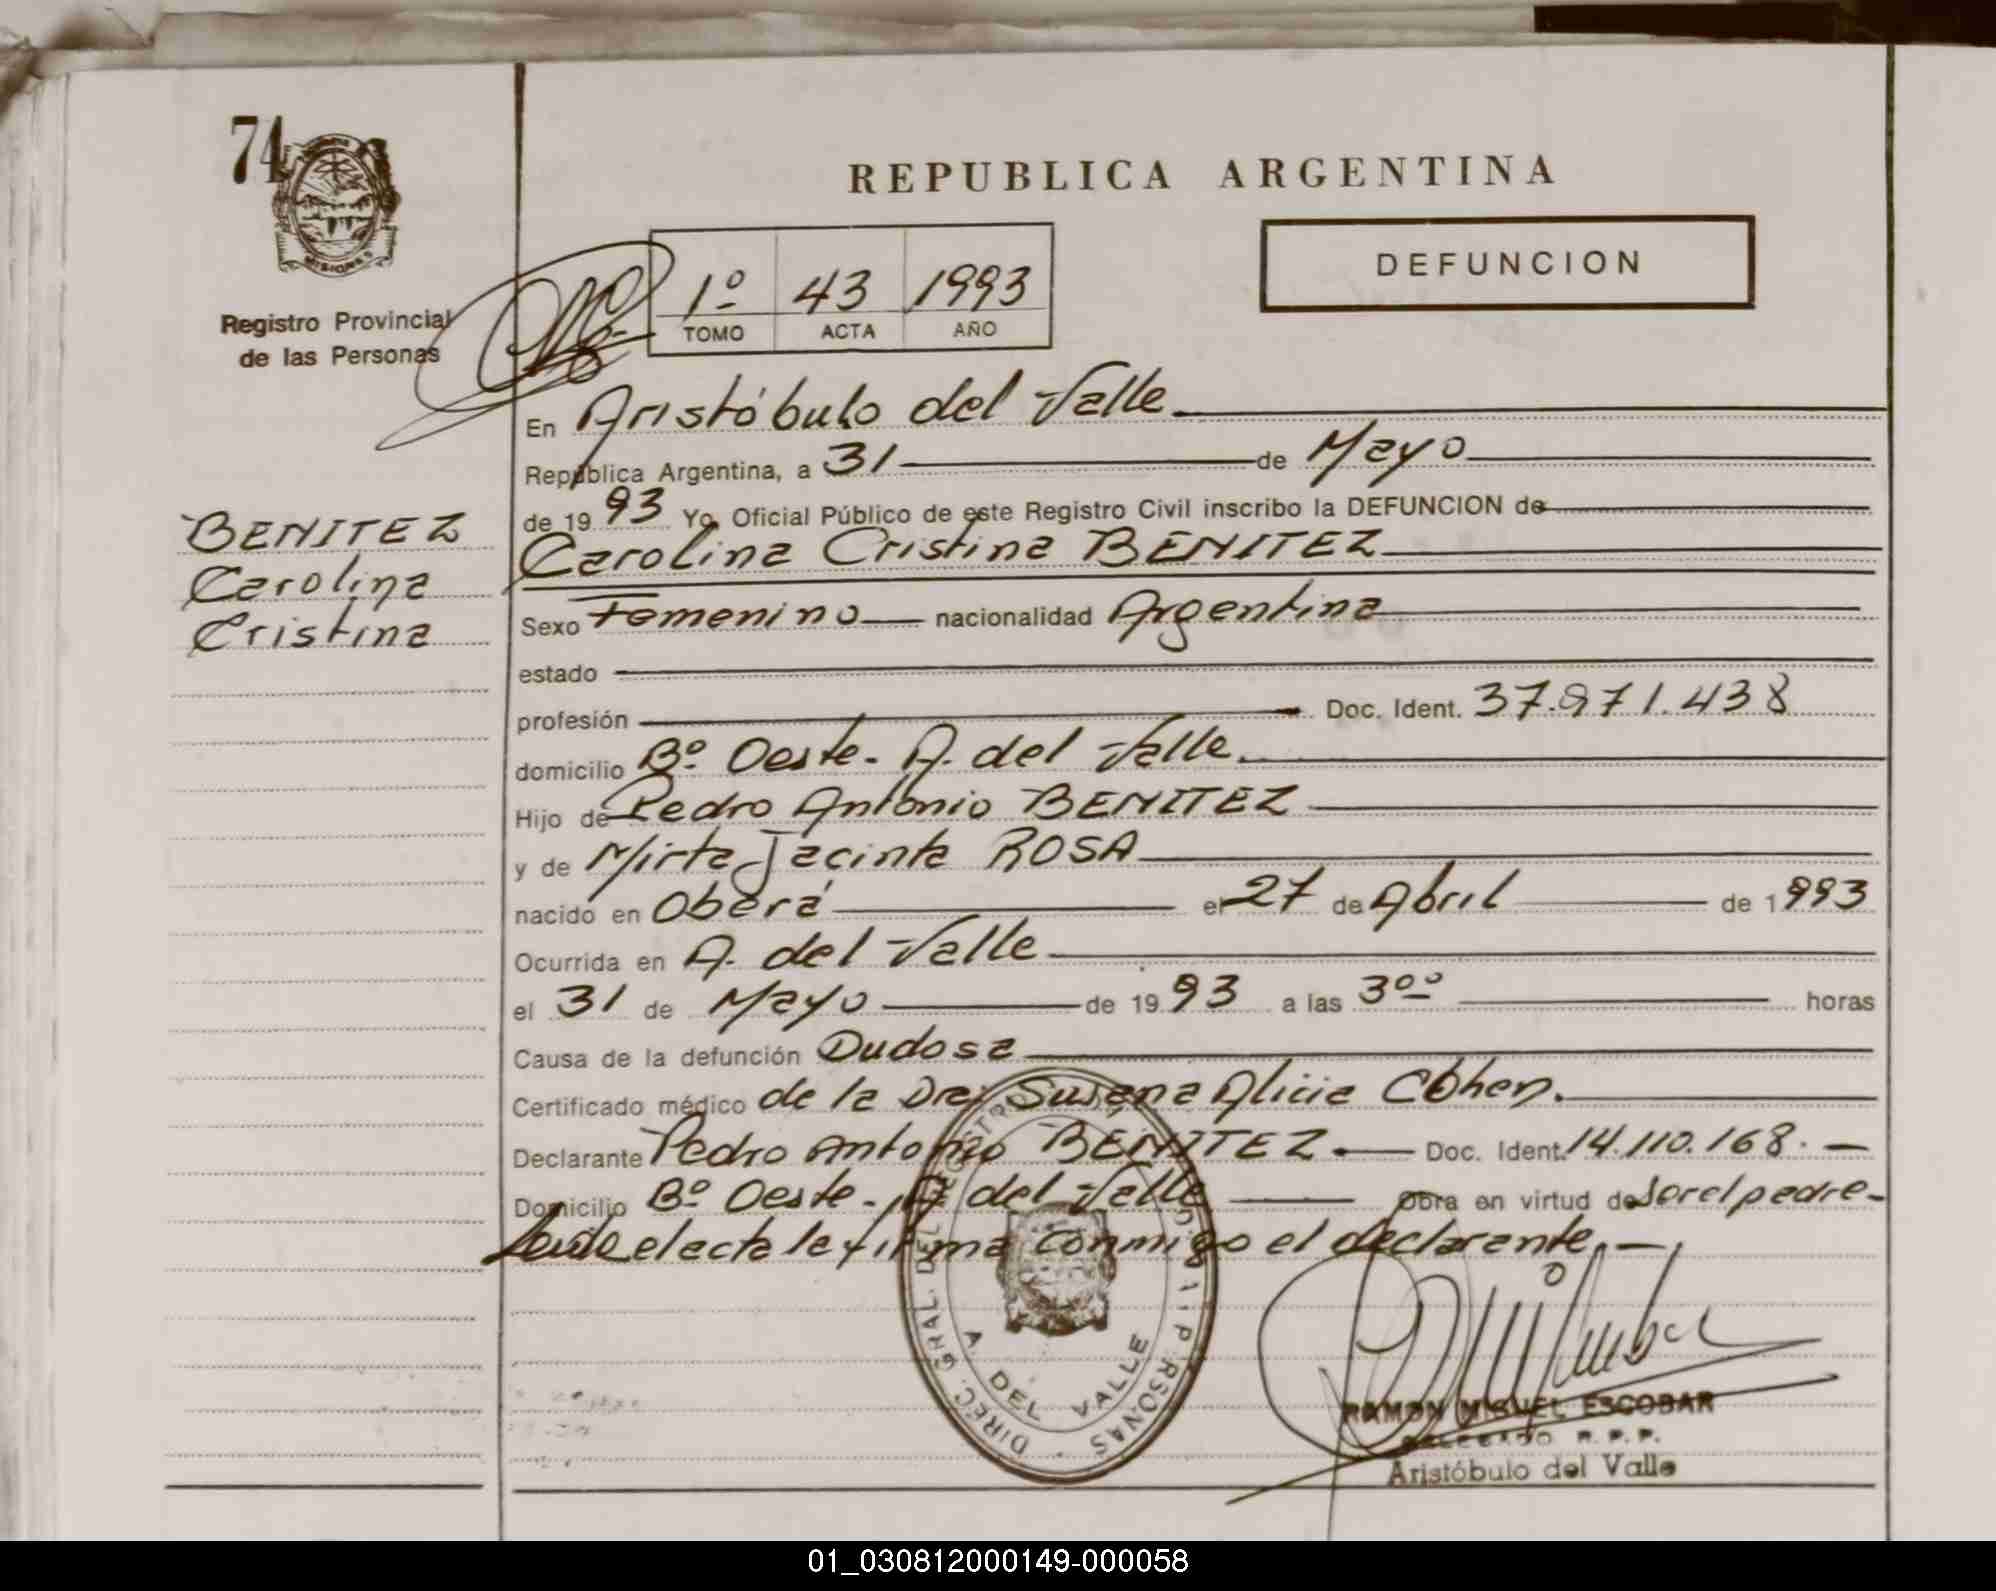 74
MISIONES
Registro Provincial
de las Personas
REPUBLICA ARGENTINA
1º 43 1993
TOMO ACTA AÑO
DEFUNCION
BENITEZ
Carolina
Cristina
En Aristóbulo del Valle
República Argentina, a 31 de Mayo
de 1993 Yo, Oficial Público de este Registro Civil inscribo la DEFUNCION de
Carolina Cristina BENITEZ
Sexo Femenino nacionalidad Argentina
estado
profesión Doc. Ident. 37.971.438
domicilio Bº Oeste - A. del Valle.
Hijo de Pedro Antonio BENITEZ
y de Mirta Jacinta ROSA
nacido en Oberá el 27 de Abril de 1993
Ocurrida en A. del Valle
el 31 de Mayo de 1993 a las 3ºº horas
Causa de la defunción Dudosa
Certificado médico de la Dra. Susana Alicia Cohen.
Declarante Pedro Antonio BENITEZ Doc. Ident. 14.110.168. -
Domicilio Bº Oeste - A. del Valle Obra en virtud de ser el padre -
Leída el acta la firma conmigo el declarante. -
DIREC. GRAL. DEL PERSONAS
A. DEL VALLE
RAMON MIGUEL ESCOBAR
DELEGADO R. P. P.
Aristóbulo del Valle
01_030812000149-000058